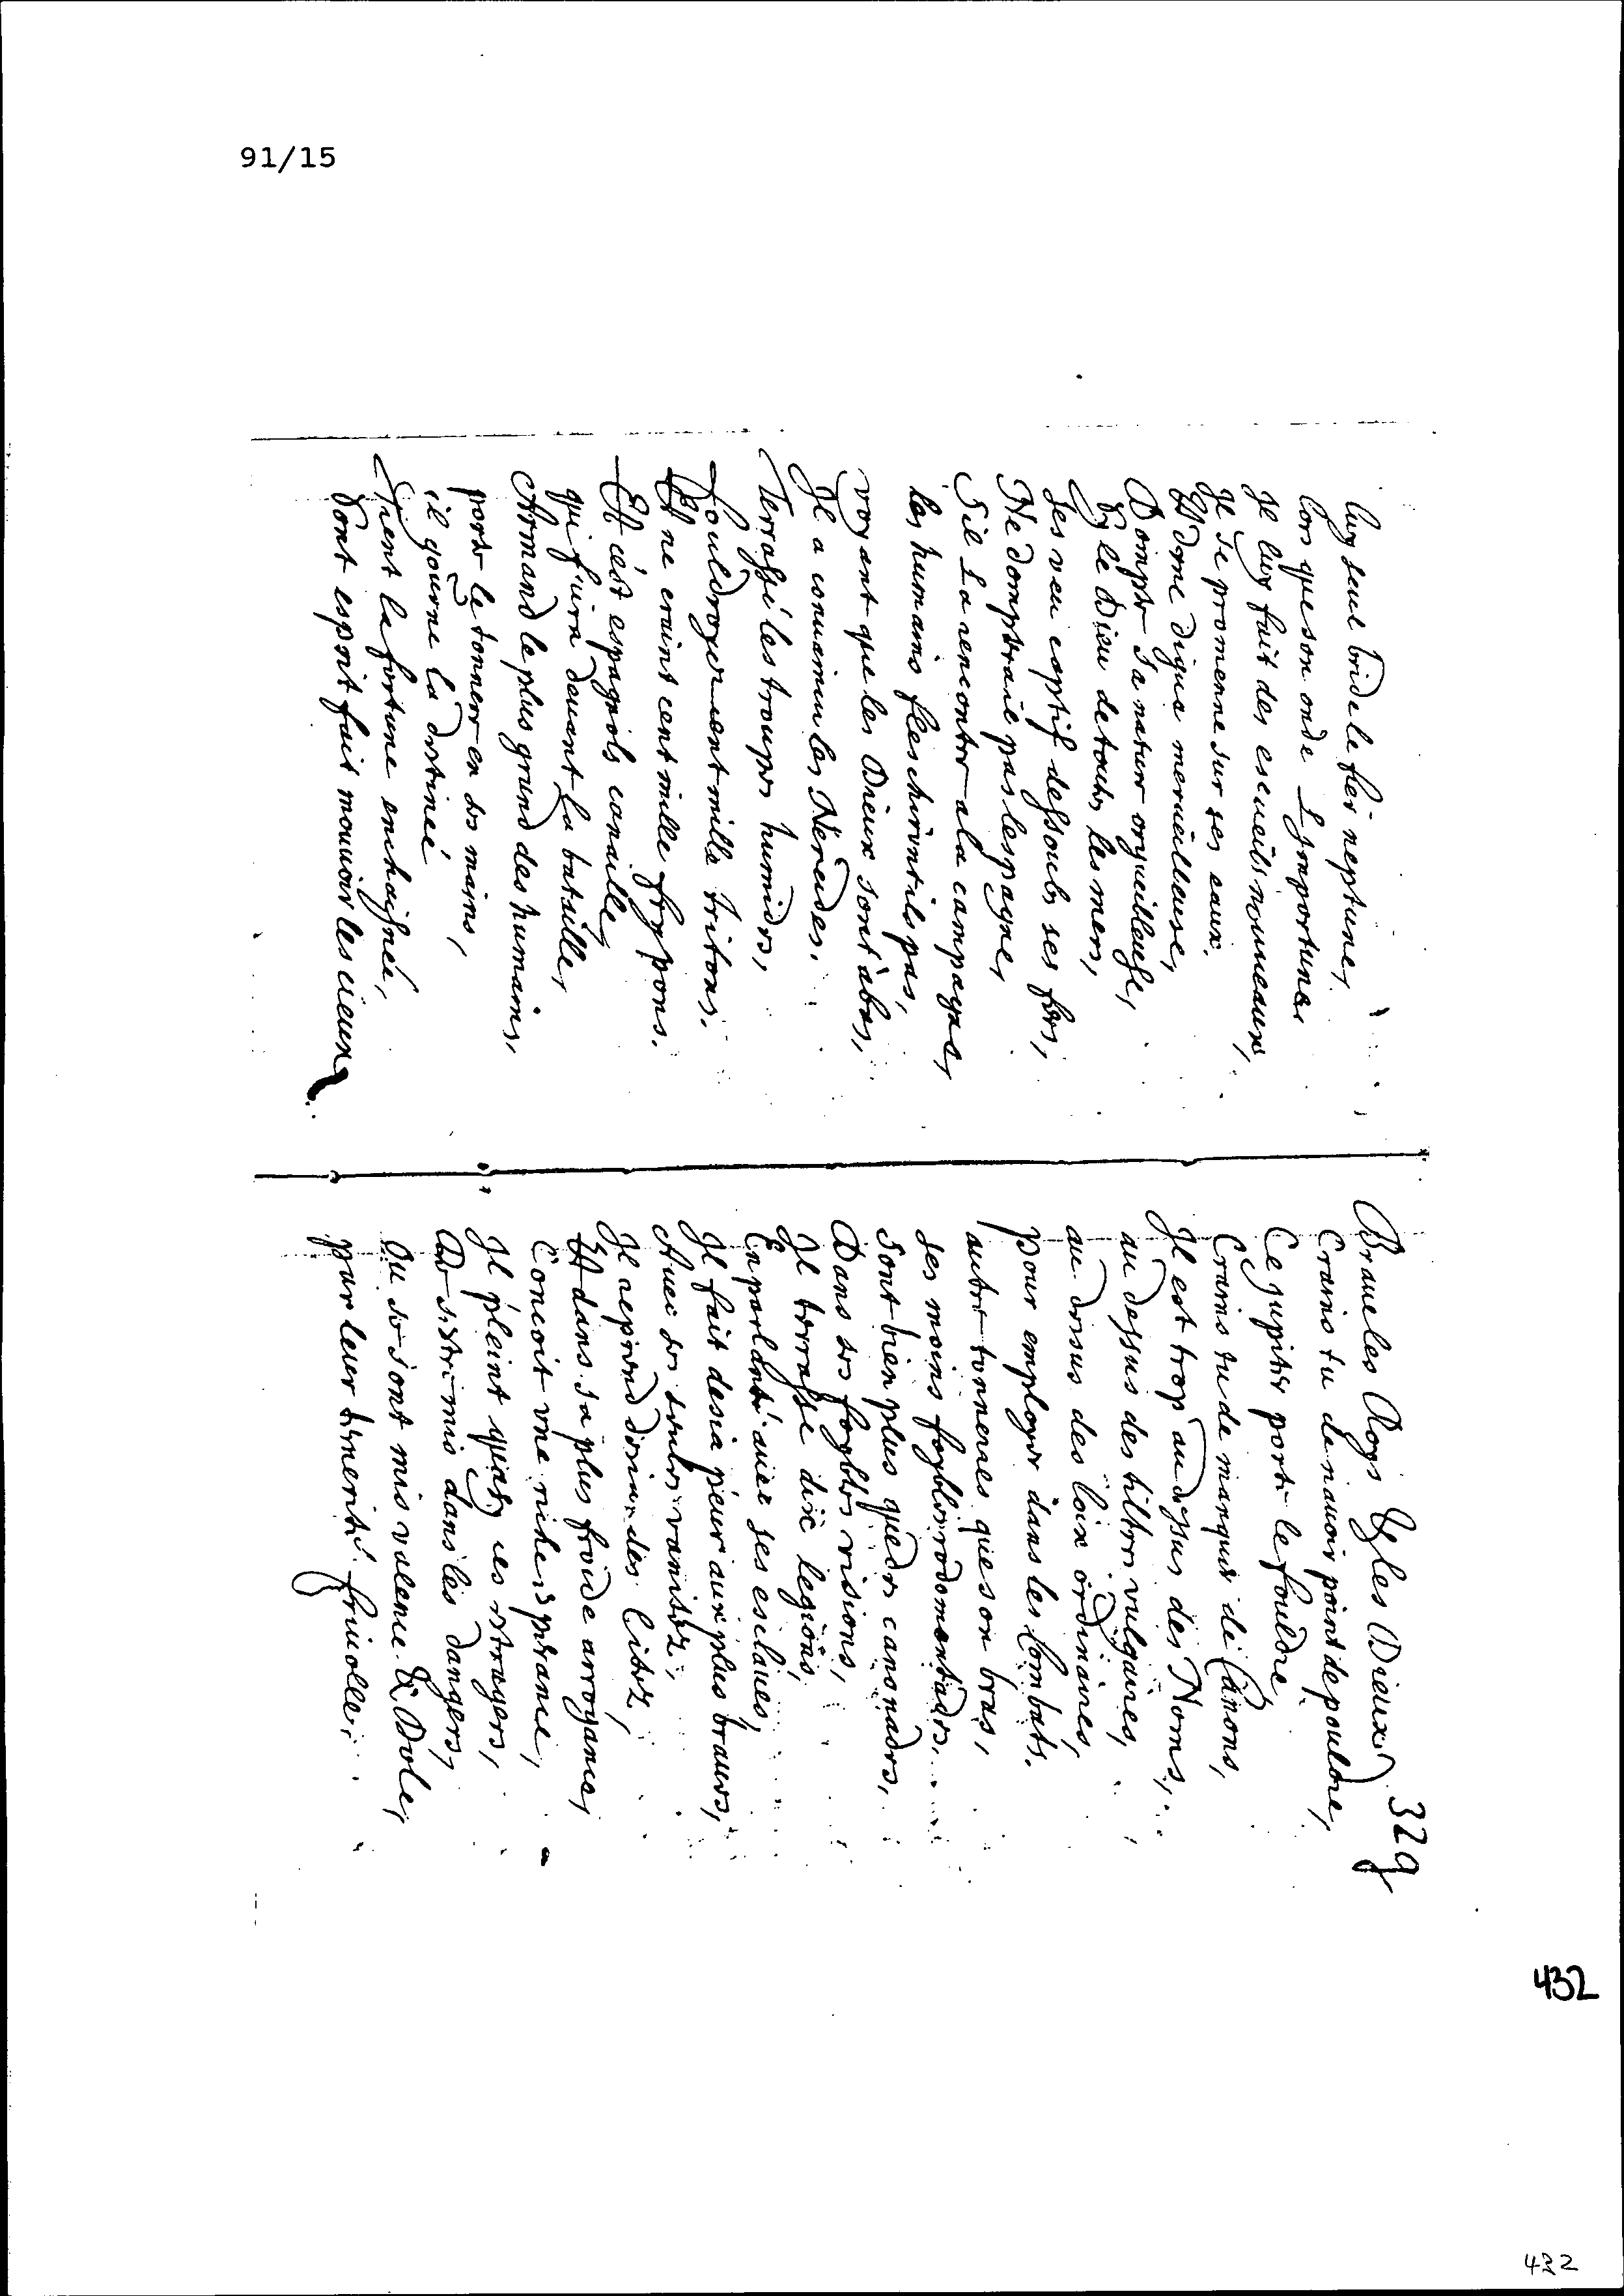 91/15
luy seul bride le fier neptune,
lors que son onde L'jmportune
Jl luy fait des escueils nouueaux,
Jl se promenne sur ses eaux.
D'vne digue merueilleuse,
Dompte sa nature orgueilleuse,
Et le Dieu de toutes les mers,
Ses veu captif dessoubs ses fers,
Ne dompterait pas lespagne,
Sil La rencontre a la campagne,
les humains fleschiront ils pas,
voyant que les Dieux sont à bas,
Jl a conuaincu les Nereides.
Terrassé les troupes humides,
Fouldroyé cent mille tritons.
Et ne craint cent mille frippons.
Et cest espagnols canaille,
qui fuira deuant la bataille,
Armand le plus grand des humains,
porte le tonnerre en ses mains,
il gouurne la destineé
Tient la fortune enchaisneé,
Dont esprit fait mouuoir les cieux
Braue les Roys Et les Dieux.
329
Crains tu de nauoir point de pouldre,
Ce jupiter porte le fouldre,
Crains tu de manquer de Canons,
Jl est trop au dessus des Noms,
au dessus des tiltres vulgaires,
au dessus des loix ordinaires,
pour employer dans les Combats.
autre tonnerres que son bras,
ses moins foybles rodomontades,
sont bien plus que des canonades,
Dans ses foybles visions,
Jl terrasse dix legions,
En parlant auec ses esclaues,
Jl fait desia peur aux plus braues,
Auec ses seules vanitez,
Jl reprend desia des Citez,
Et dans sa plus froide arrogance,
Concoit vne riche esperance,
Jl pleint quasy ces estragers,
De sestre mis dans les dangers,
Ou se sont mis valence & Dole,
par leur temerité friuolle.
432
432